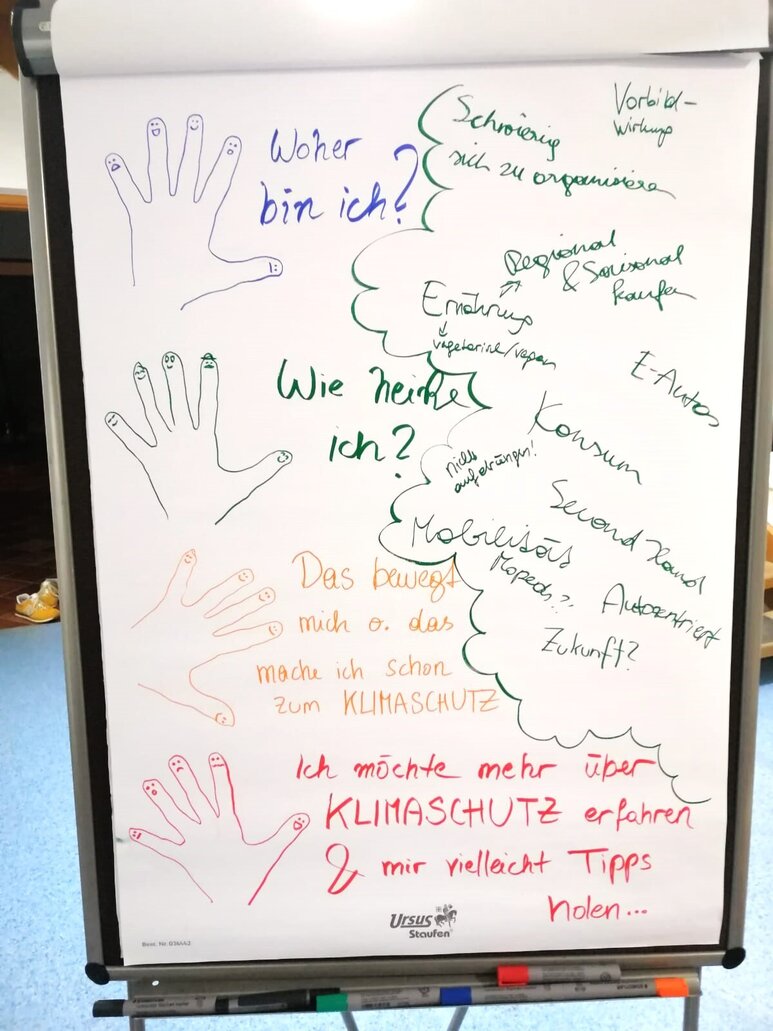 Woher
bin ich?
Schwierig
sich zu organisieren
Vorbild-
wirkung
Regional
& Saisonal
kaufen
Ernährung
vegetarisch/vegan
E-Autos
Wie heiße
ich?
Konsum
nichts
aufdrängen!
Second Hand
Mobilität
Mopeds??
Autozentriert
Zukunft?
Das bewegt
mich o. das
mache ich schon
zum KLIMASCHUTZ
Ich möchte mehr über
KLIMASCHUTZ erfahren
& mir vielleicht Tipps
holen...
Ursus
Staufen
Best. Nr. 034443